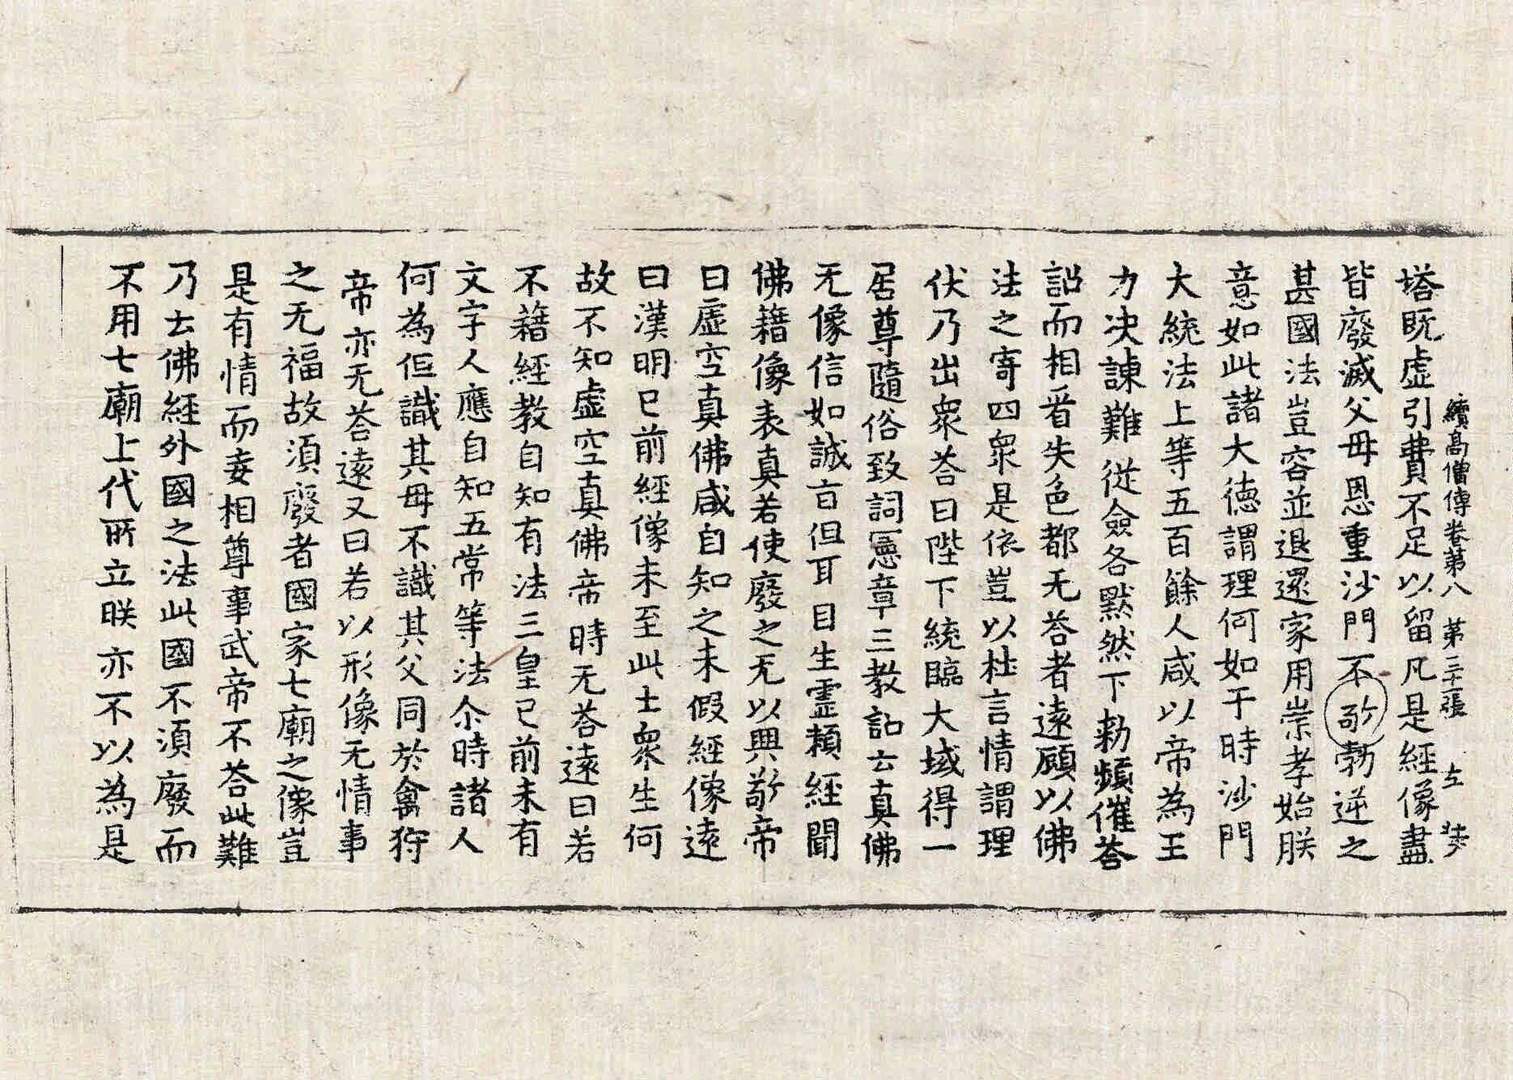 續高僧傳卷第八 第 張 左
塔既虛引費不足以留凡是經像盡
皆廢滅父母恩重沙門不敬勃逆之
甚國法豈容並退還家用崇孝始朕
意如此諸大德謂理何如于時沙門
大統法上等五百餘人咸以帝為王
力決諫難從僉各默然下勑頻催荅
詔而相看失色都无荅者遠顧以佛
法之寄四衆是依豈以杜言情謂理
伏乃出衆荅曰陛下統臨大域得一
居尊隨俗致詞憲章三教詔云真佛
无像信如誠言但耳目生靈賴經聞
佛藉像表真若使廢之无以興敬帝
曰虛空真佛咸自知之未假經像遠
曰漢明已前經像未至此土衆生何
故不知虛空真佛帝時无荅遠曰若
不藉經教自知有法三皇已前未有
文字人應自知五常等法尒時諸人
何為但識其母不識其父同於禽狩
帝亦无荅遠又曰若以形像无情事
之无福故須廢者國家七廟之像豈
是有情而妄相尊事武帝不荅此難
乃云佛經外國之法此國不須廢而
不用七廟上代所立朕亦不以為是